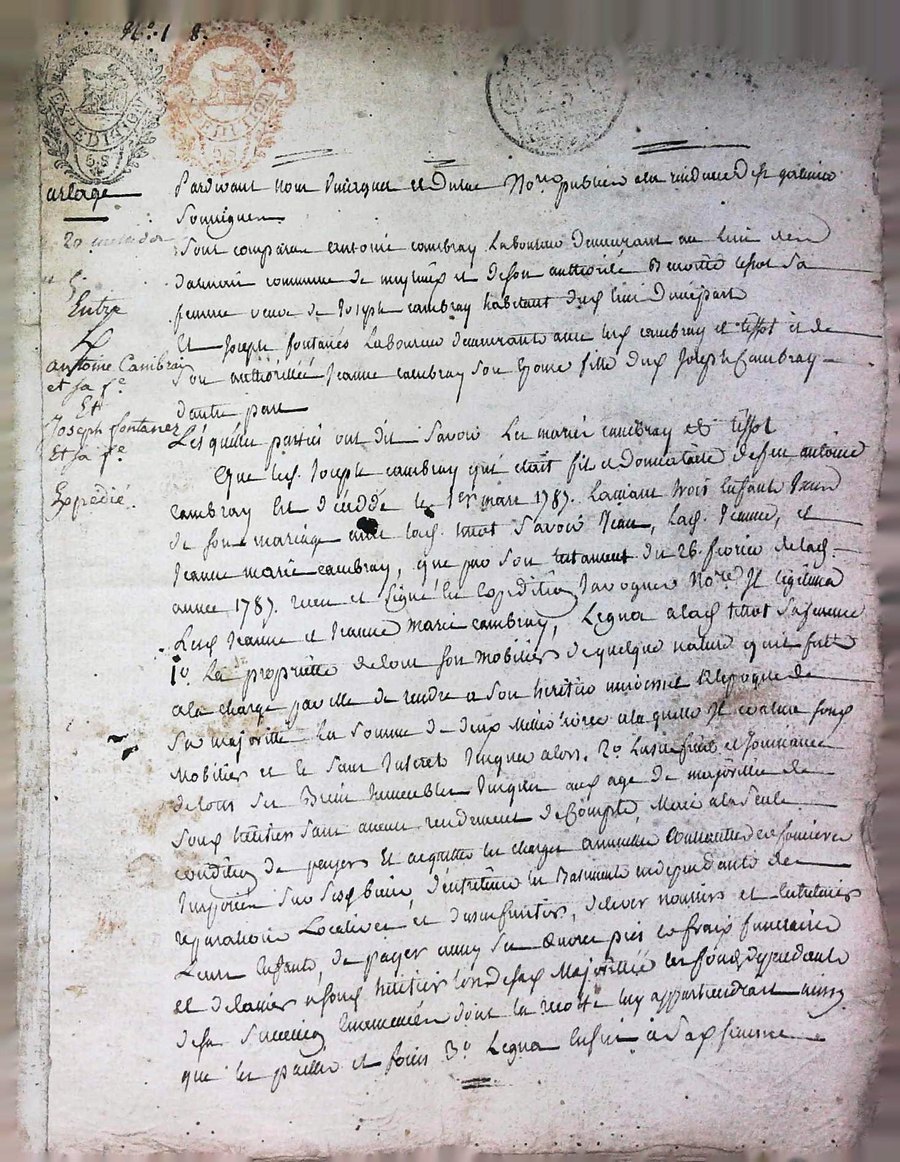 N°. 1 8.
EXPEDITION
EXPEDITION
arlage
20 messidor
Entre
Antoine Cambray
et sa f.e
Et
Joseph fontanes
Et sa f.e
Expedié.
Pardevant Nore public a la residence de
Soussignés
Sont comparu antoine cambray Laboureur demeurant au lieu de
commune de et de son authorité Benoitte tissot Sa
femme veuve de Joseph cambray habitant dud. lieu d'une part
Et Joseph fontanés Laboureur demeurant avec lesd. cambray et tissot et de
Son authorité Jeanne cambray son Epouse fille dud. Joseph Cambray
d'autre part
Lesquelles parties ont dit Savoir Les mariés cambray et tissot
Que led. Joseph cambray qui était fils et Donnataire de feu antoine
cambray Est décédé le 1er mars 1787. Laissant trois Enfants
de son mariage avec lad. tissot Savoir Jean, Lad. Jeanne, et
Jeanne marie cambray, que par son testament du 26. fevrier de lad.
année 1787. recu et Signé En Expedition Nore Il légitima
Lesd. Jeanne et Jeanne marie cambray, Legua a lad. tissot Sa femme
1o. La propriété de tout son mobilier de quelque nature qu'il fut
a la charge par elle de rendre a son héritier universel a l'epoque de
Sa majorité la somme de deux mille livres a laquelle Il évalua
Mobilier et le Sans Interets Jusques alors. 2o. L'usufruit et Jouissance
de tous ses Biens Immeubles Jusques aud. age de majorité de
Sond. héritier sans aucun rendement de Compte, Mais a la Seule
condition de payer Et acquitter les charges annuelles foncieres
Imposées Sur Sesd. biens, d'entretenir les Batiments independante de
reparations Locatives et d'usufruitier, d'elever nourrir et Entretenir
Leurs Enfants, de payer aussy ses Œuvres pies et fraix funeraire
et de laisser a sond. héritier lors de sad. Majorité les fonds dependants
de sa Succession Ensemencés dont la recolte luy appartiendrait ainsy
que les pailles et foins 3o Legua Enfin a Sad. femme